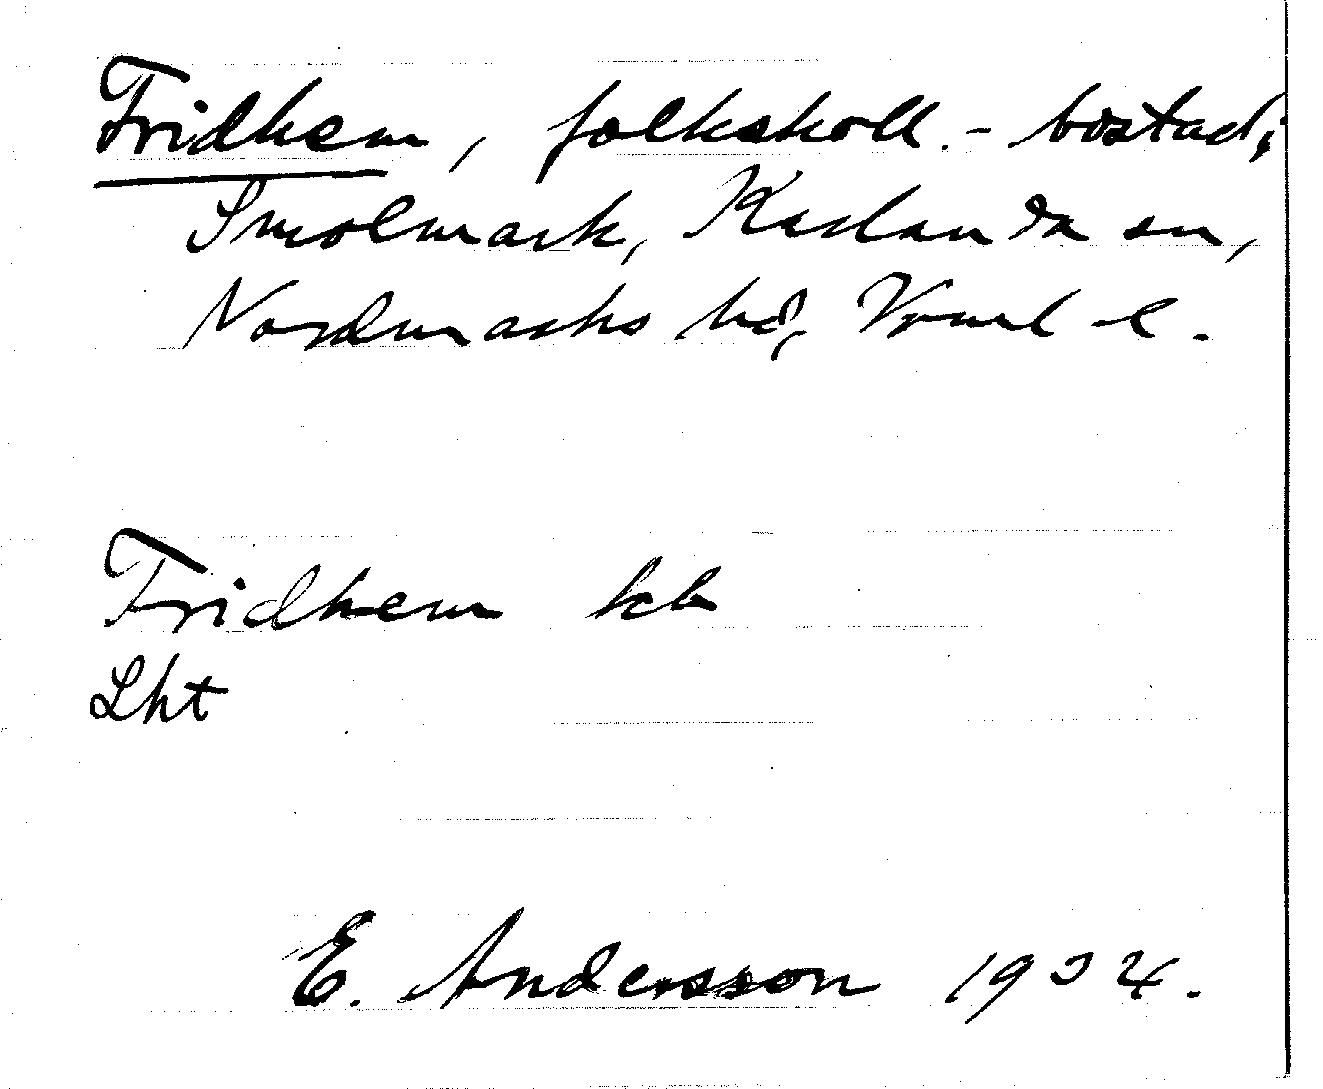 Fridhem, folkskoll.-bostad,
Smolmark, Karlanda sn,
Nordmarks hd, Vrml l.
Fridhem kck
Lht
E. Andersson 1934.